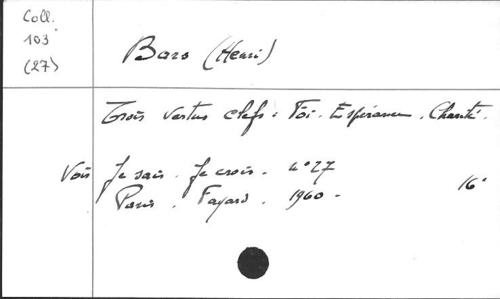 Coll.
103
(27)
Bars (Henri)
Trois vertus clefs : Foi. Espérance. Charité.
Voir Je sais. Je crois. n° 27
Paris. Fayard. 1960 -
16°